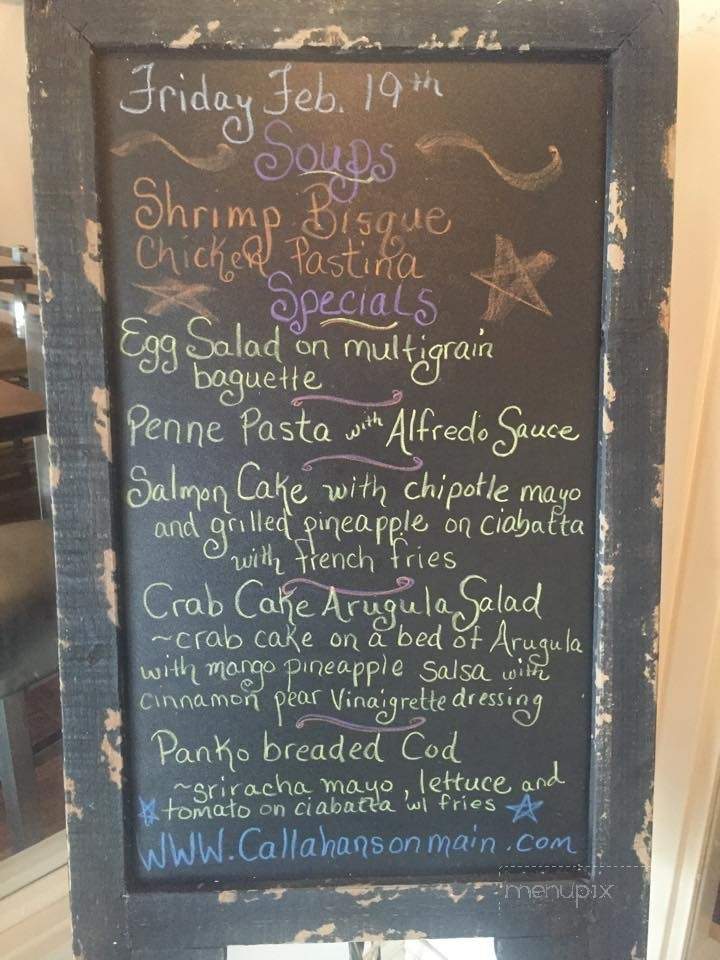 Friday Feb. 19th
Soups
Shrimp Bisque
Chicken Pastina
Specials
Egg Salad on multigrain
baguette
Penne Pasta with Alfredo Sauce
Salmon Cake with chipotle mayo
and grilled pineapple on ciabatta
with french fries
Crab Cake Arugula Salad
~crab cake on a bed of Arugula
with mango pineapple salsa with
cinnamon pear Vinaigrette dressing
Panko breaded Cod
~sriracha mayo, lettuce and
tomato on ciabatta w/ fries
WWW.Callahansonmain.com
menupix